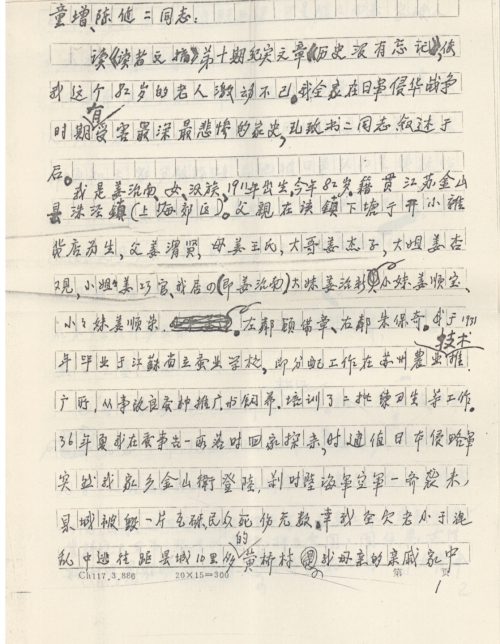 童增、陈健二同志:
读《读者文摘》第十期纪实文章《历史没有忘记》,使
我这个82岁的老人激动不已。我全家在日军侵华战争
时期有受害最深最悲惨的家史,现致书二同志叙述于
后。
我是姜治南女、汉族,1911年出生,今年82岁。籍贯江苏金山
县洙泾镇(上海郊区)。父亲在该镇下塘于开小雜
货店为生,父姜渭贤,母姜王氏,大哥姜杰子,大姐姜杏
观,小姐姜巧官、我居四(即姜治南)大妹姜治新,小妹姜顺宝、
小々妹姜顺荣。左鄰顾常章、右鄰朱保奇。我于1931
年毕业于江蘇省立蚕业学校,即分配工作在苏州農业技术推
广所,从事改良蚕种推广与饲养、培训了二批练习生等工作。
36年夏我在蚕事告一段落时回家探亲,时适值日本侵略軍
突然我家乡金山衛登陸,刹时陸海軍空軍一齐袭来,
县城被毁一片瓦砾民众死伤无数。幸我全家老小于混
乱中逃往距县城10里的黄桥村我母亲的亲戚家中
Ch117.3.886 20×15=300 第 页
1